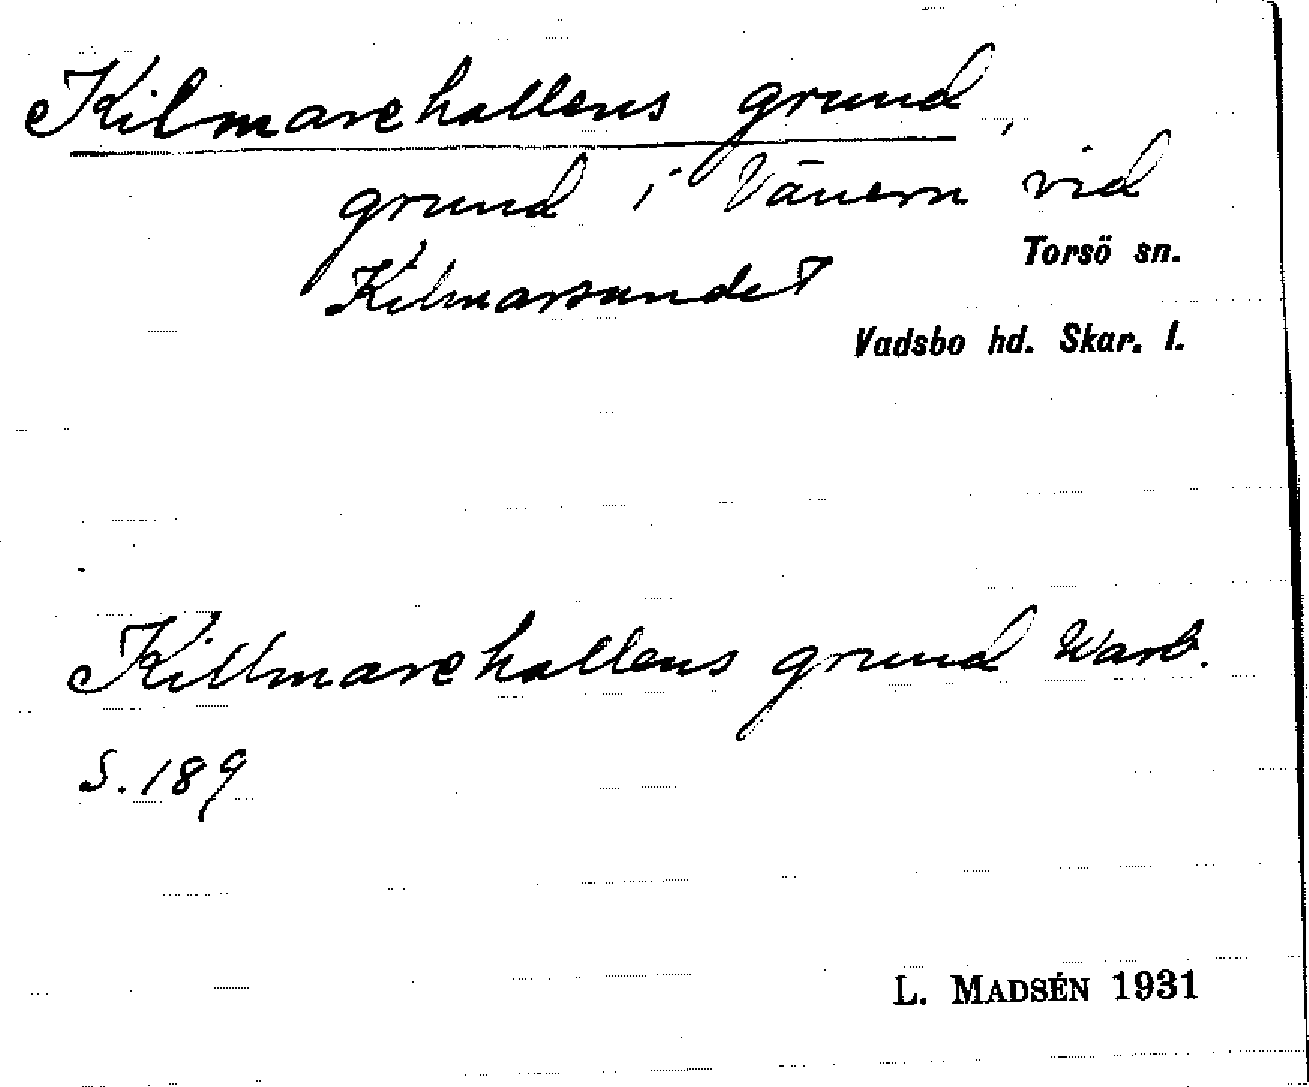 Kilmarehallens grund,
grund i Vänern vid
Torsö sn.
Kilmarsundet
Vadsbo hd. Skar. l.
Killmarehallens grund Warb.
S. 189
L. MADSÉN 1931